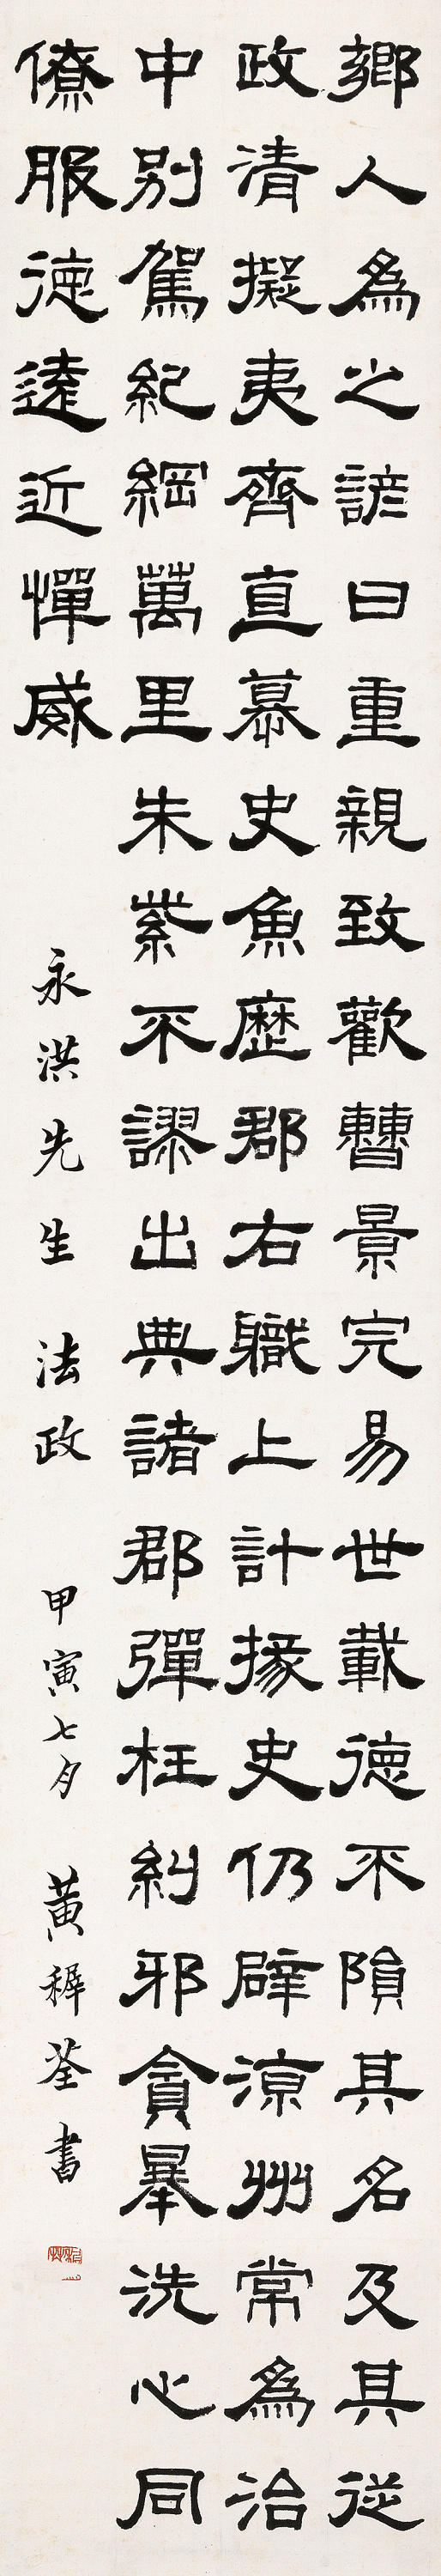 鄉人爲之諺曰重親致歡曹景完易世載德不隕其名及其從
政清擬夷齊直慕史魚歷郡右職上計掾史仍辟涼州常爲治
中別駕紀綱萬里朱紫不謬出典諸郡彈枉糾邪貪暴洗心同
僚服德遠近憚威
永洪先生 法政 甲寅七夕 黃稺荃書